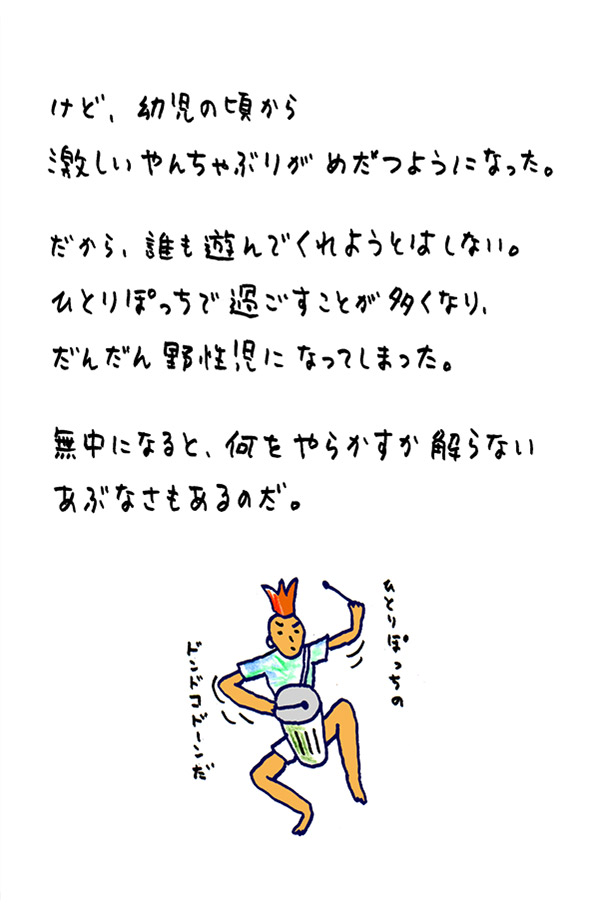 けど、幼児の頃から
激しいやんちゃぶりがめだつようになった。
だから、誰も遊んでくれようとはしない。
ひとりぽっちで過ごすことが多くなり、
だんだん野性児になってしまった。
無中になると、何をやらかすか解らない
あぶなさもあるのだ。
ひとりぽっちの
ドンドコドーンだ